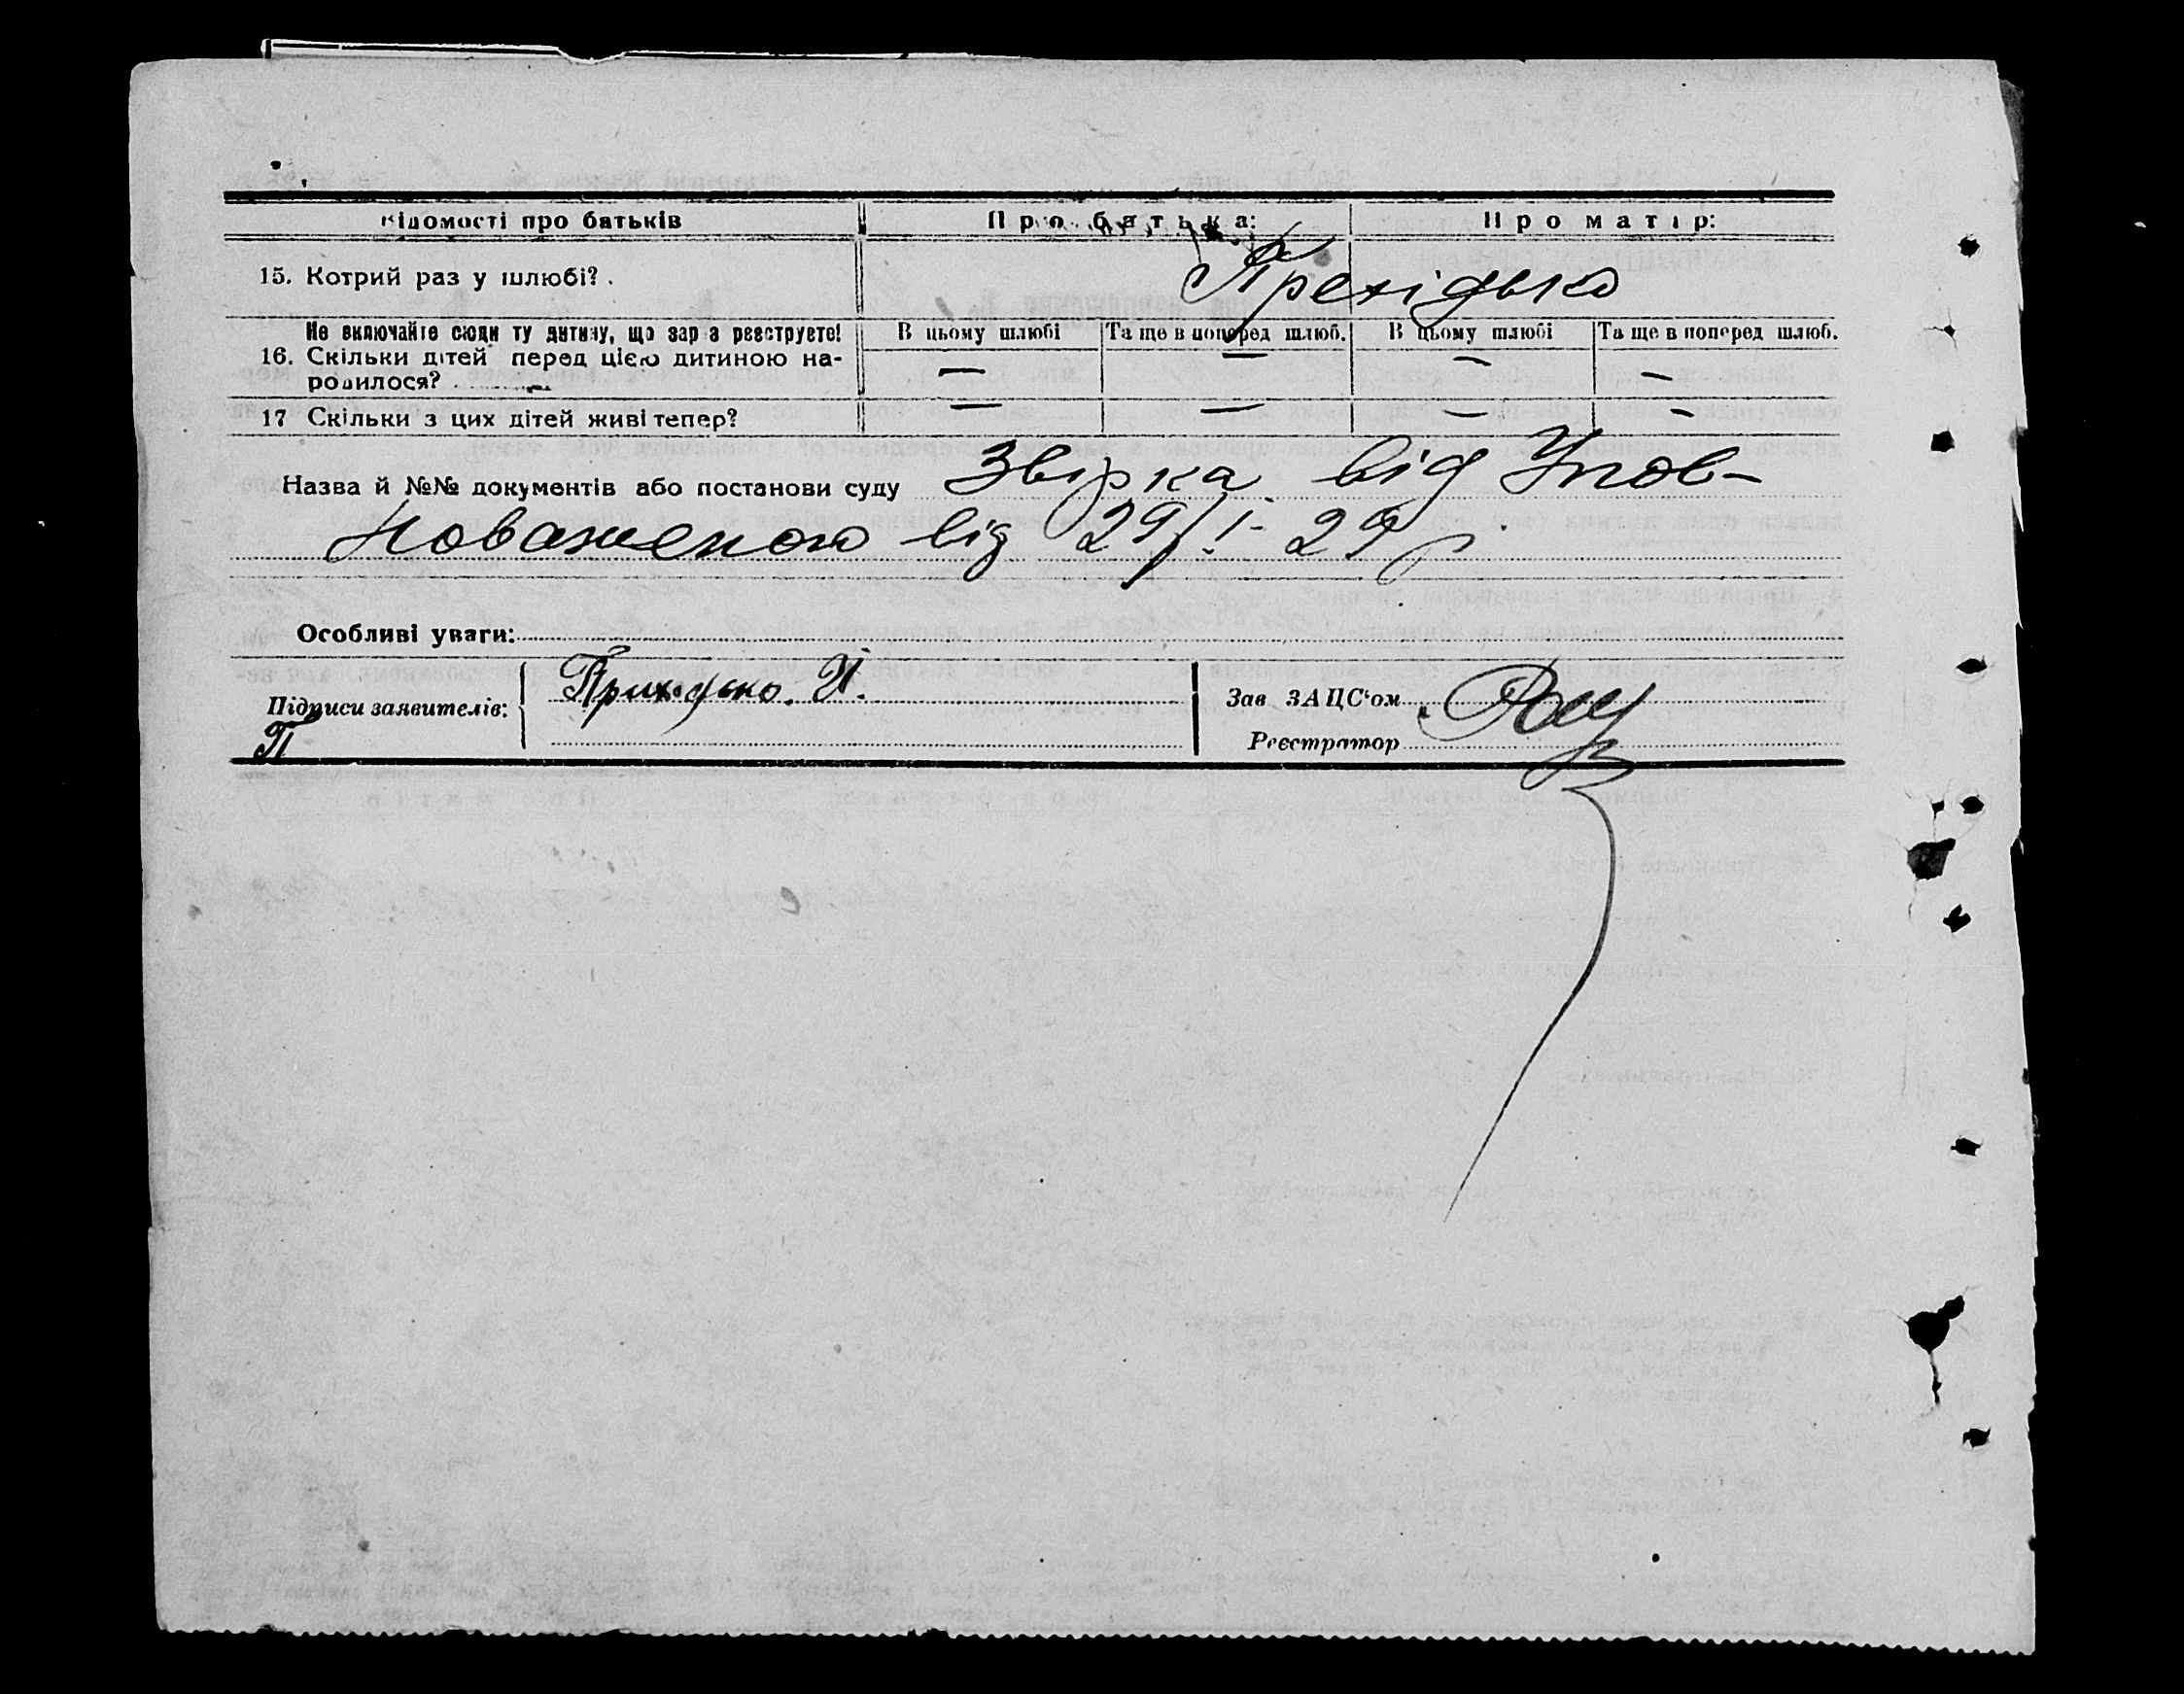 Відомості про батьків Про батька: Про матір:
15. Котрий раз у шлюбі? .
Не включайте сюди ту дитину, що зараз реєструєте! В цьому шлюбі Та ще в поперед шлюб. В цьому шлюбі Та ще в поперед шлюб.
16. Скільки дітей перед цією дитиною на- — — — —
родилося?
17 Скільки з цих дітей живі тепер? — — — —
Назва й №№ документів або постанови суду Звірка від Упов-
новаженого від 29/I- 29 р
Особливі уваги:
Приходько. И.
Підписи заявителів:
П
Зав ЗАЦС'ом
Реєстратор